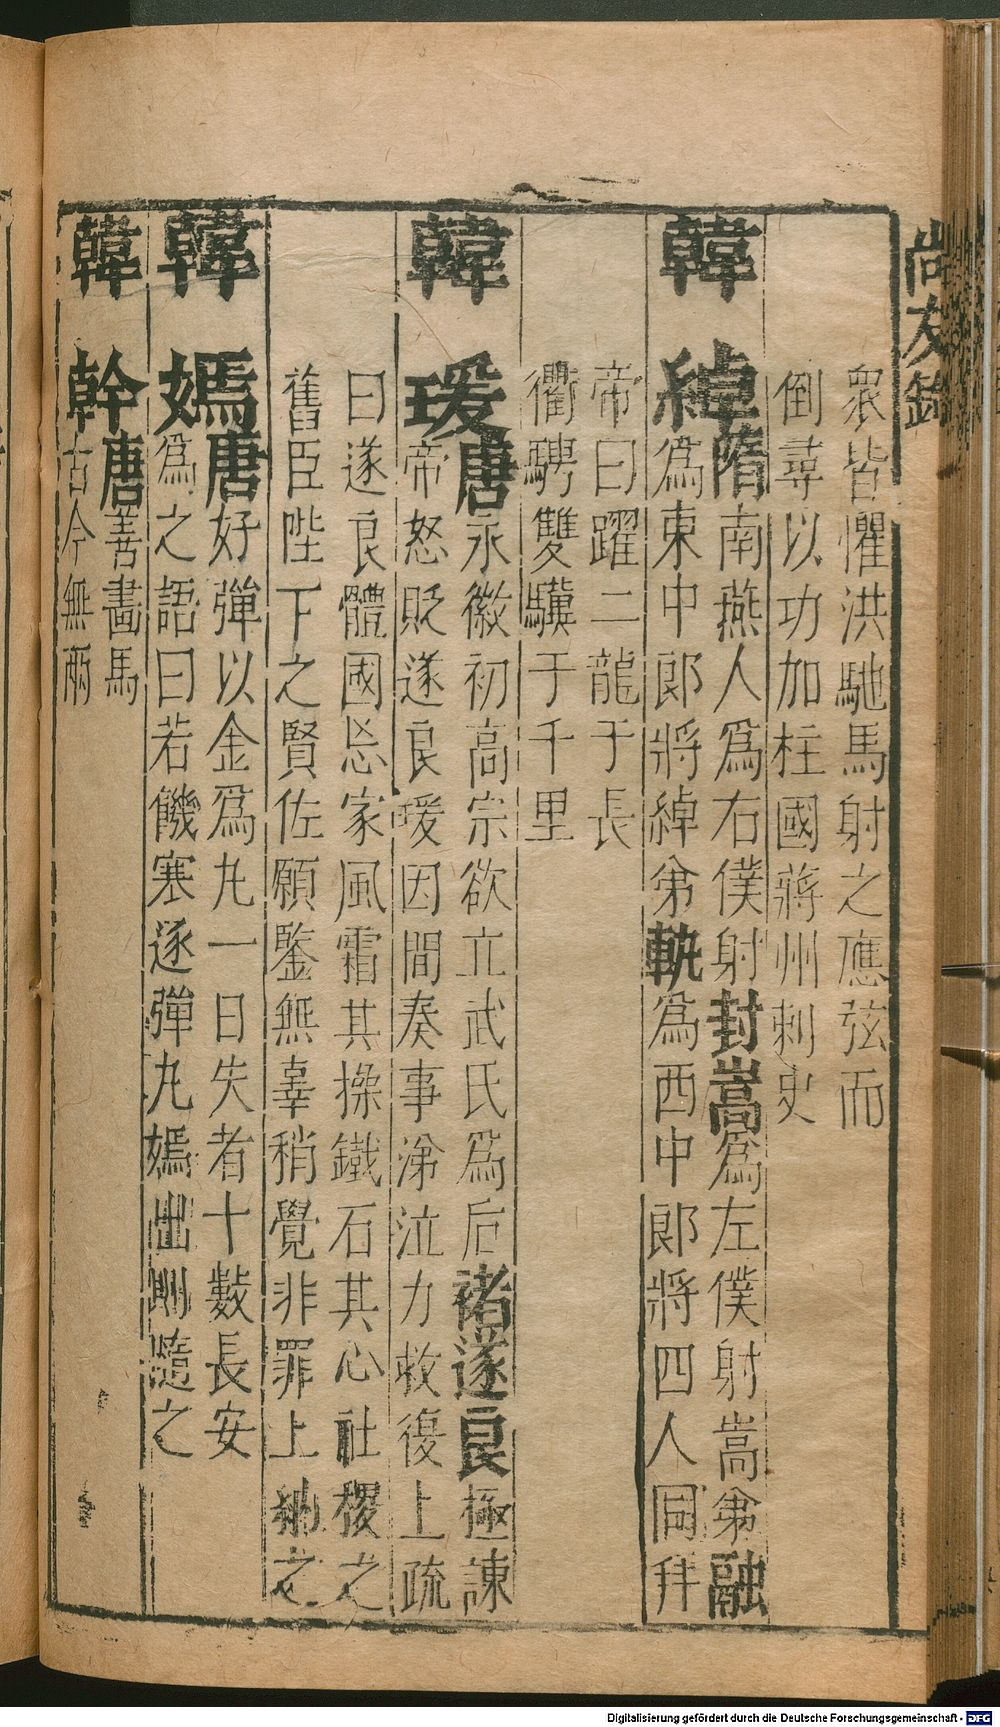 尚友錄
衆皆懼洪馳馬射之應弦而
倒尋以功加柱國蔣州刺史
韓綽隋南燕人爲右僕射封嵩爲左僕射嵩弟融
爲東中郎將綽弟軌爲西中郎將四人同拜
帝曰躍二龍于長
衢騁雙驥于千里
韓瑗唐永徽初高宗欲立武氏爲后褚遂良極諫
帝怒貶遂良瑗因間奏事涕泣力救復上疏
曰遂良體國忘家風霜其操鐵石其心社稷之
舊臣陛下之賢佐願鑒無辜稍覺非罪上納之
韓嫣唐好彈以金爲丸一日失者十數長安
爲之語曰若饑寒逐彈丸嫣出則隨之
韓幹唐善畫馬
古今無兩
Digitalisierung gefördert durch die Deutsche Forschungsgemeinschaft - DFG